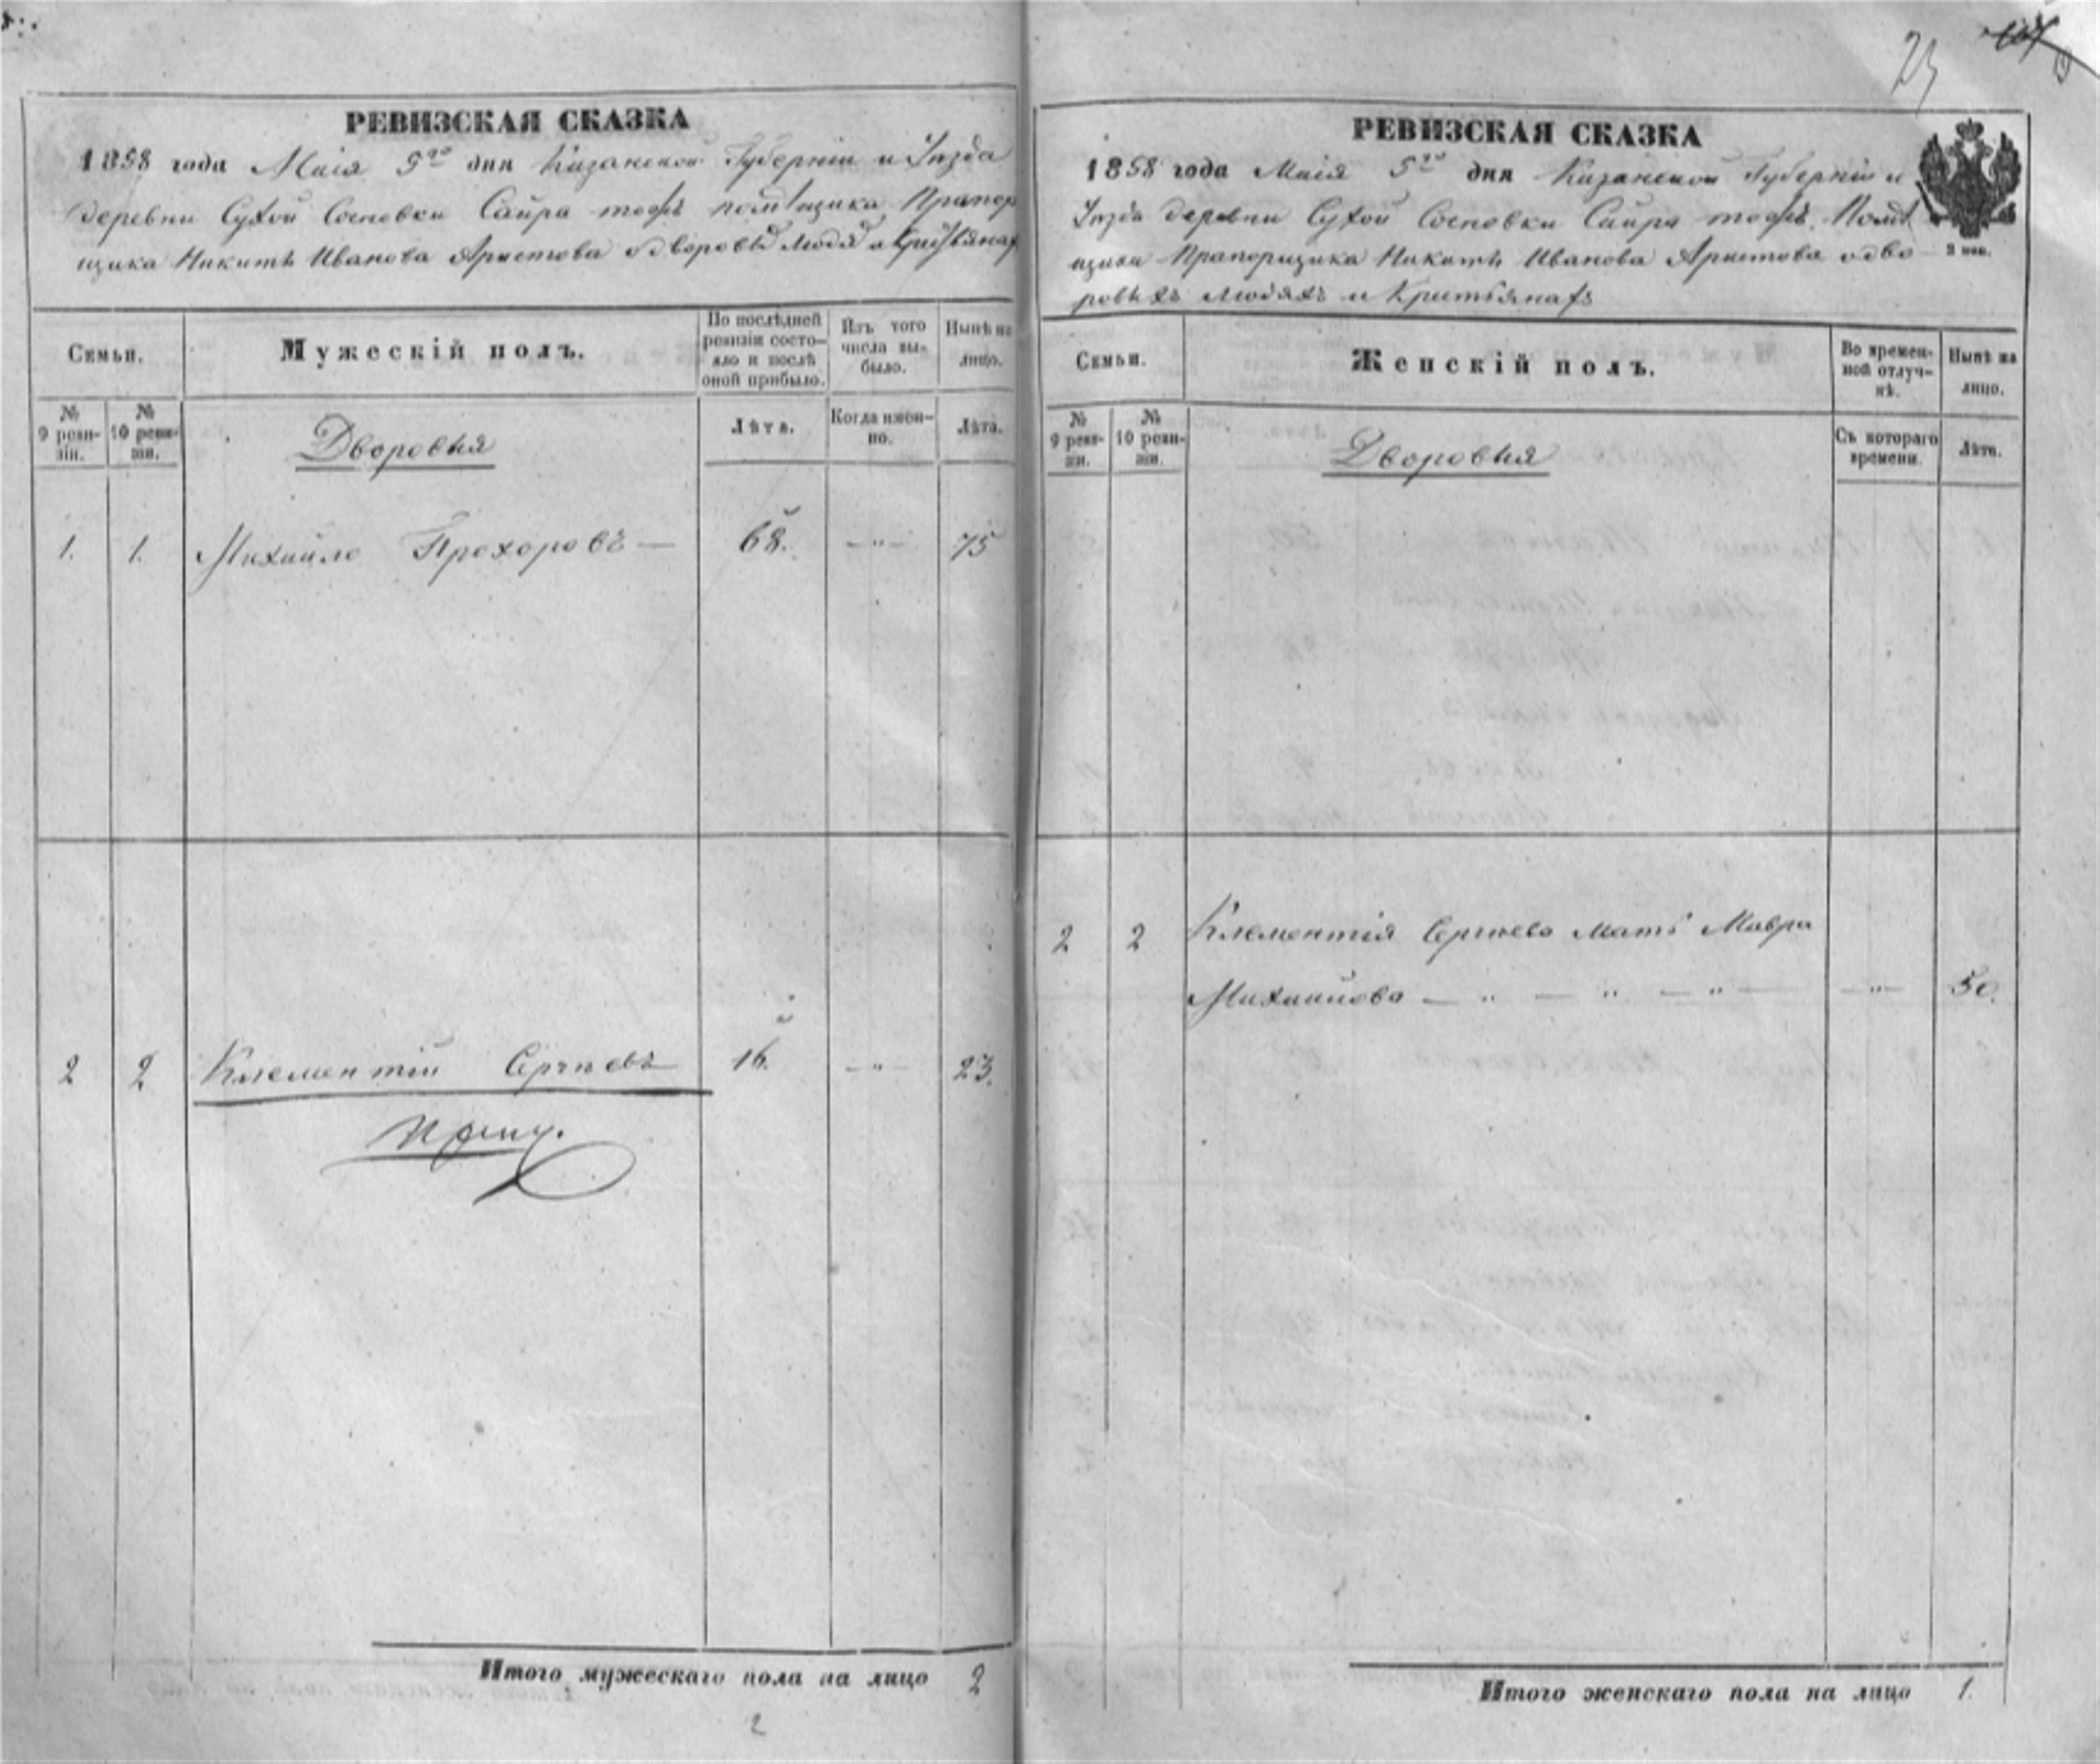 23
РЕВИЗСКАЯ СКАЗКА
1858 года Маія 5го дня Казанской Губерніи и Уѣзда
деревни Сухой Сосновки Сайра тожъ помѣщика Прапор
щика Никиты Иванова Аристова о дворовыхъ людяхъ и Крестьянахъ
Семьи.
Мужескій полъ.
По послѣдней ревизіи состояло и послѣ оной прибыло.
Изъ того числа выбыло.
Нынѣ на лицо.
№ 9 ревизіи.
№ 10 ревизіи.
Дворовыя
Лѣта.
Когда именно.
Лѣта.
1. 1. Михайло Прохоровъ — 68. —"— 75
2 2 Климентій Сергѣевъ 16. —"— 23.
Итого мужескаго пола на лицо 2
2
РЕВИЗСКАЯ СКАЗКА
1858 года Маія 5го дня Казанской Губерніи и
Уѣзда деревни Сухой Сосновки Сайра тожъ. Помѣ
щика Прапорщика Никиты Иванова Аристова о дво
ровыхъ людяхъ и Крестьянахъ
Семьи.
Женскій полъ.
Во временной отлучкѣ.
Нынѣ на лицо.
№ 9 ревизіи.
№ 10 ревизіи.
Дворовыя
Съ котораго времени.
Лѣта.
2 2 Климентія Сергѣева мать Мавра
Михайлова — " — " — " — —"— 50.
Итого женскаго пола на лицо 1.